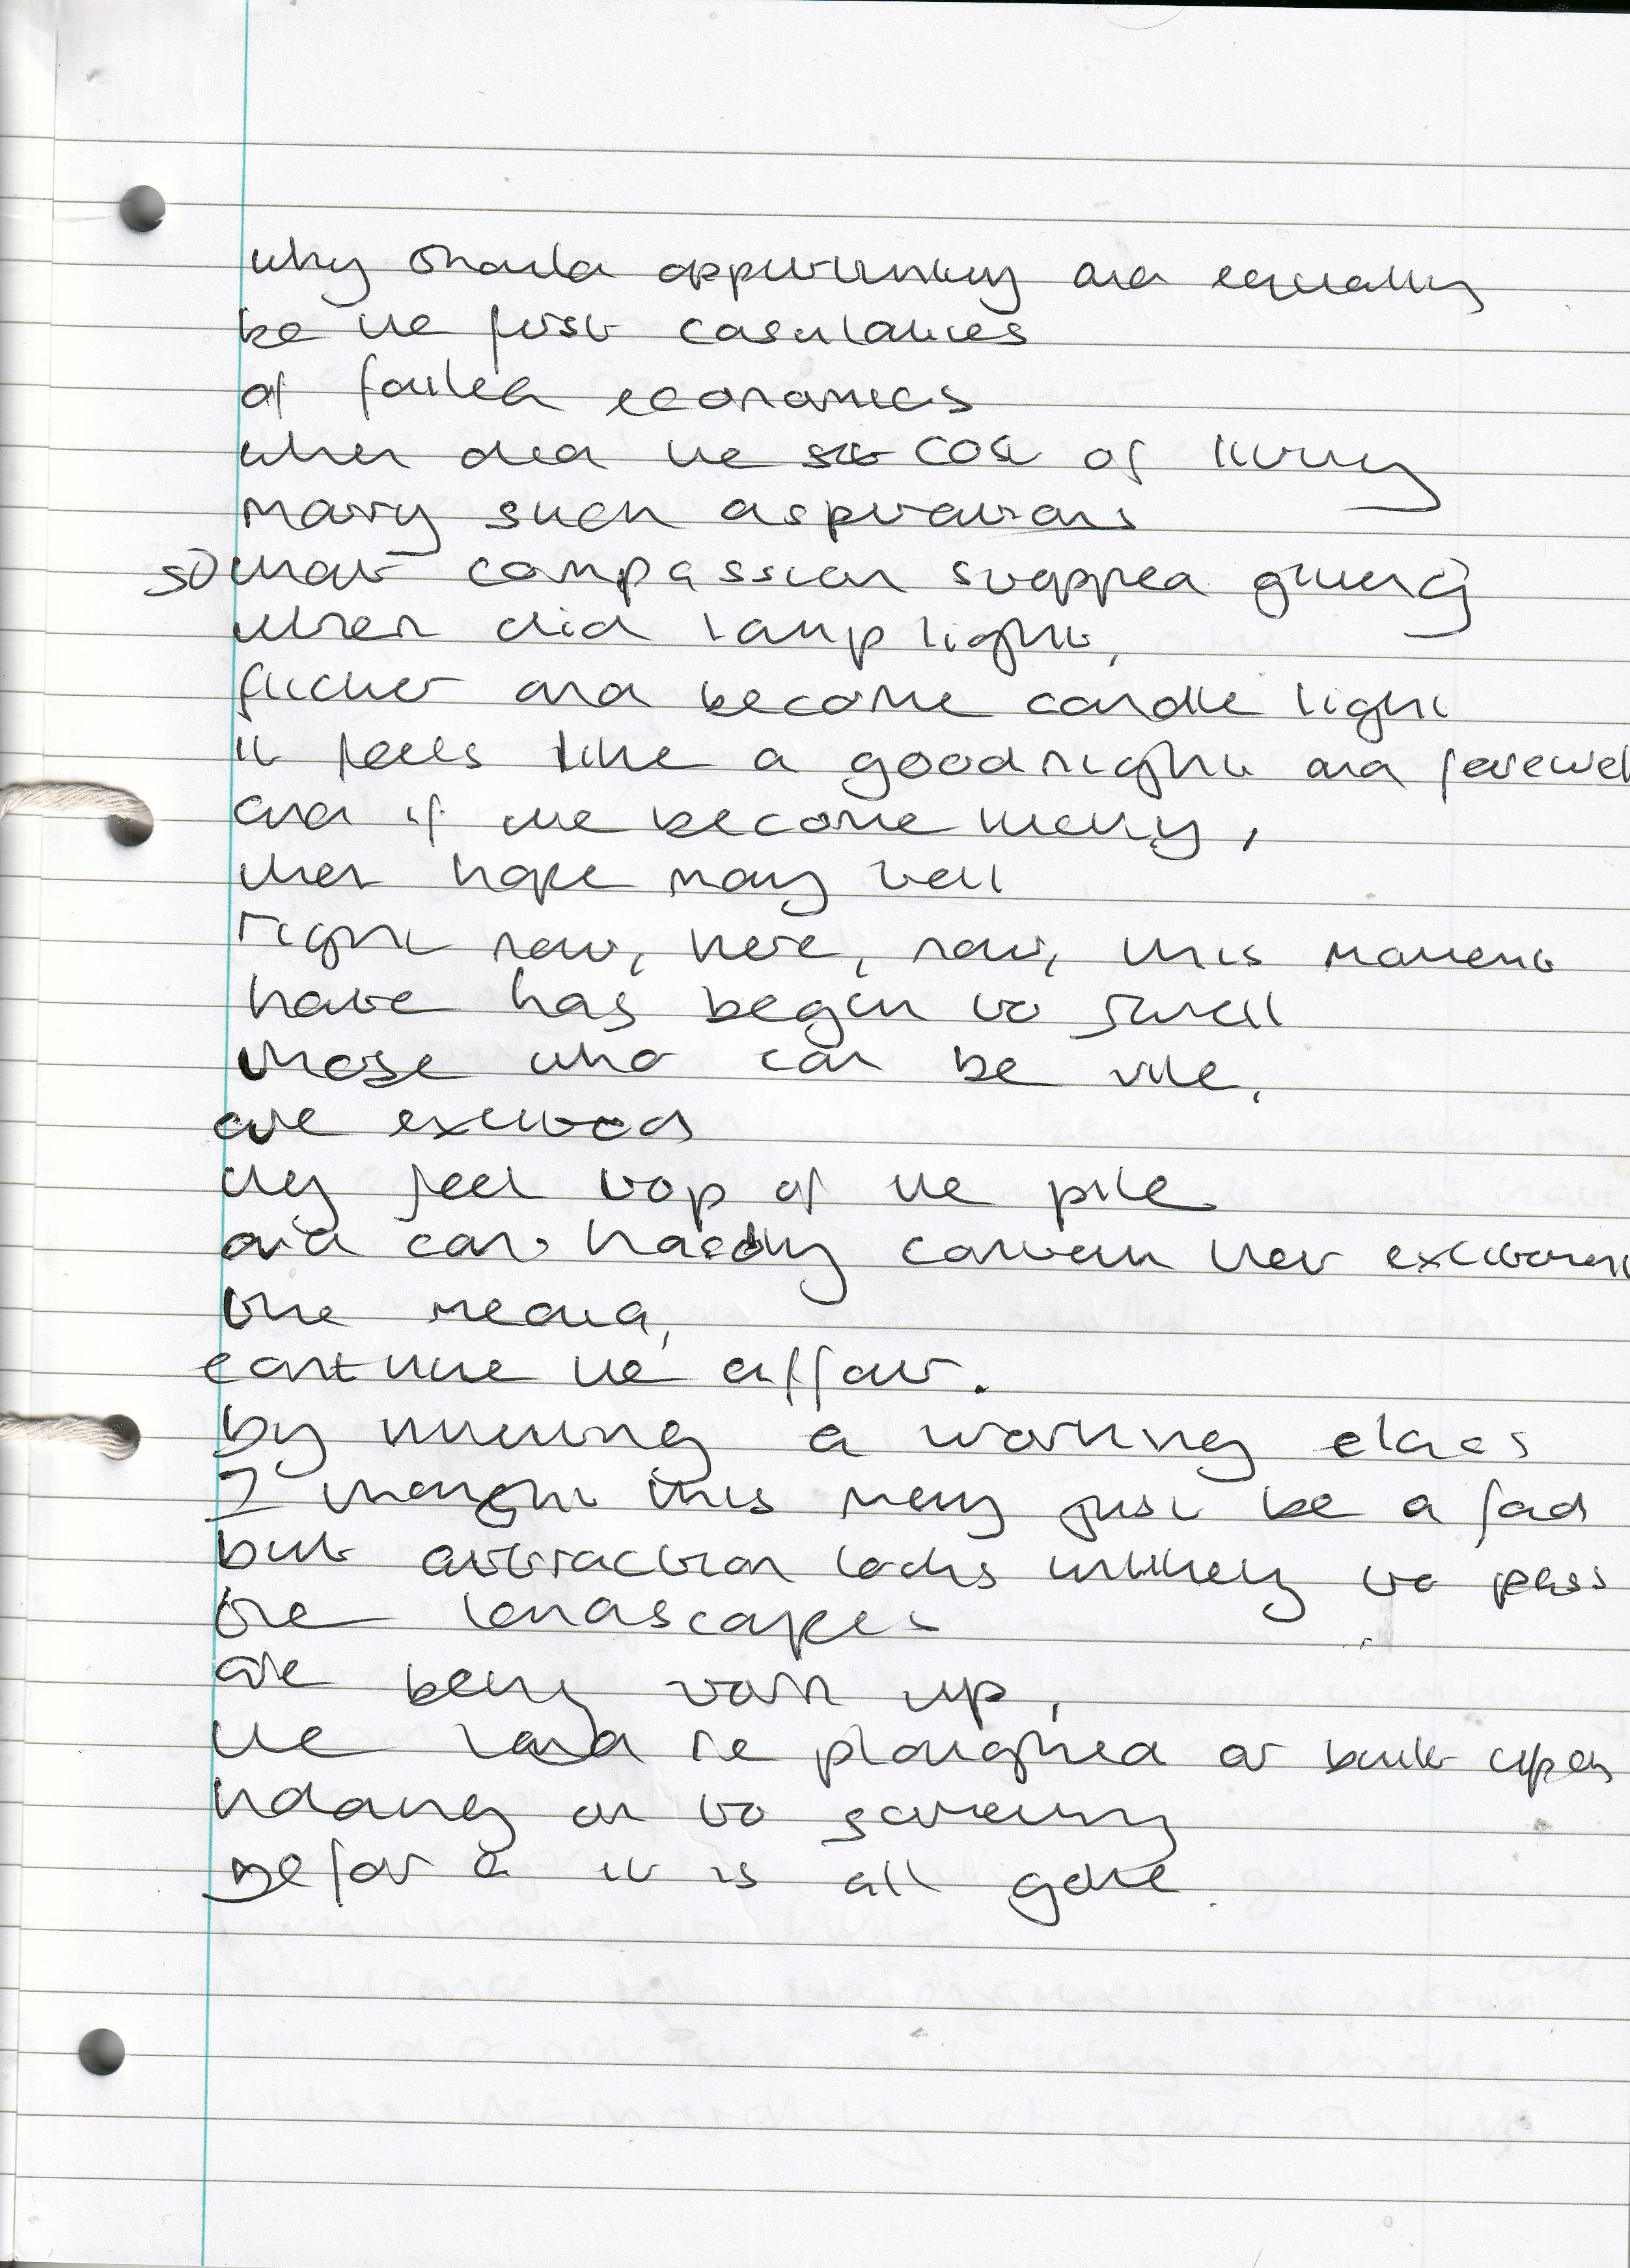 why should opportunity and equality
be the first casulaties
of failed economics
when did the cost of living
marry such aspirations
so that compassion stopped giving
when did lamp light,
flicker and become candle light
it feels like a goodnight and farewel
and if we become weary,
then hope may well
right now, here, now, this moment
hate has begin to swell
those who can be vile,
are excited
they feel top of the pile
and can hardly contain their excitement
the media,
continue the affair.
by a working class
I thought this may just be a fad
but attraction looks unlikely to pass
the landscapes
are being torn up,
the land re ploughed or built upon
holding on to something
before it is all gone.